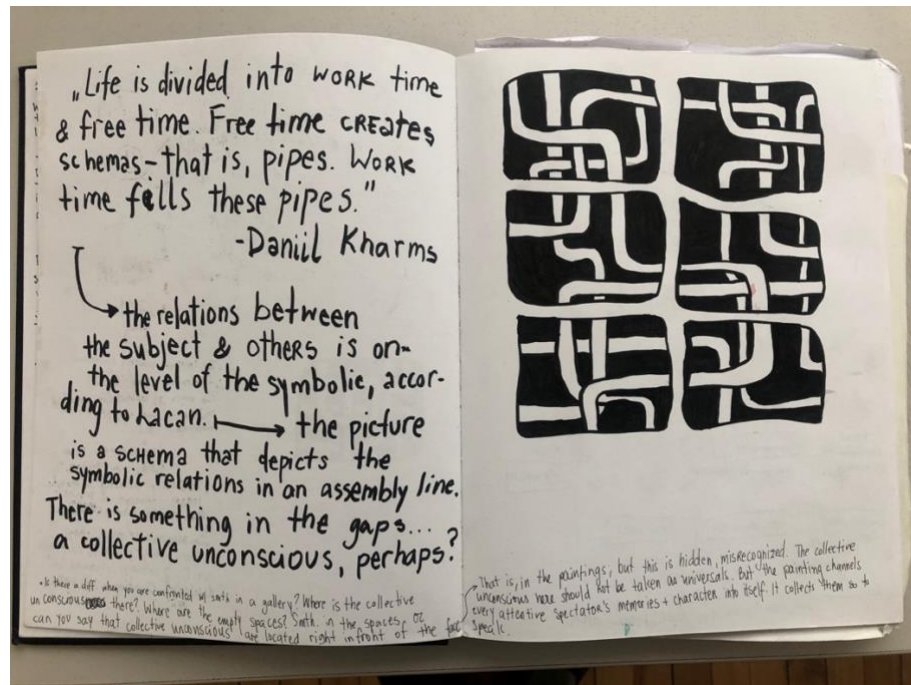 „Life is divided into WORK time
& free time. Free time CREATES
schemas – that is, pipes. WORK
time fills these pipes."
-Daniil Kharms
the relations between
the subject & others is on-
the level of the symbolic, accor-
ding to Lacan. the picture
is a schema that depicts the
symbolic relations in an assembly line.
There is something in the gaps...
a collective unconscious, perhaps?
• Is there a diff when you are confronted w/ smth in a gallery? Where is the collective
unconscious there? Where are the empty spaces? Smth. in the spaces, or
can you say that collective unconscious are located right infront of the
That is, in the paintings, but this is hidden, misrecognized. The collective
unconscious here should not be taken as universals. But the painting channels
every attentive spectator's memories + character into itself. It collects them so to
speak.